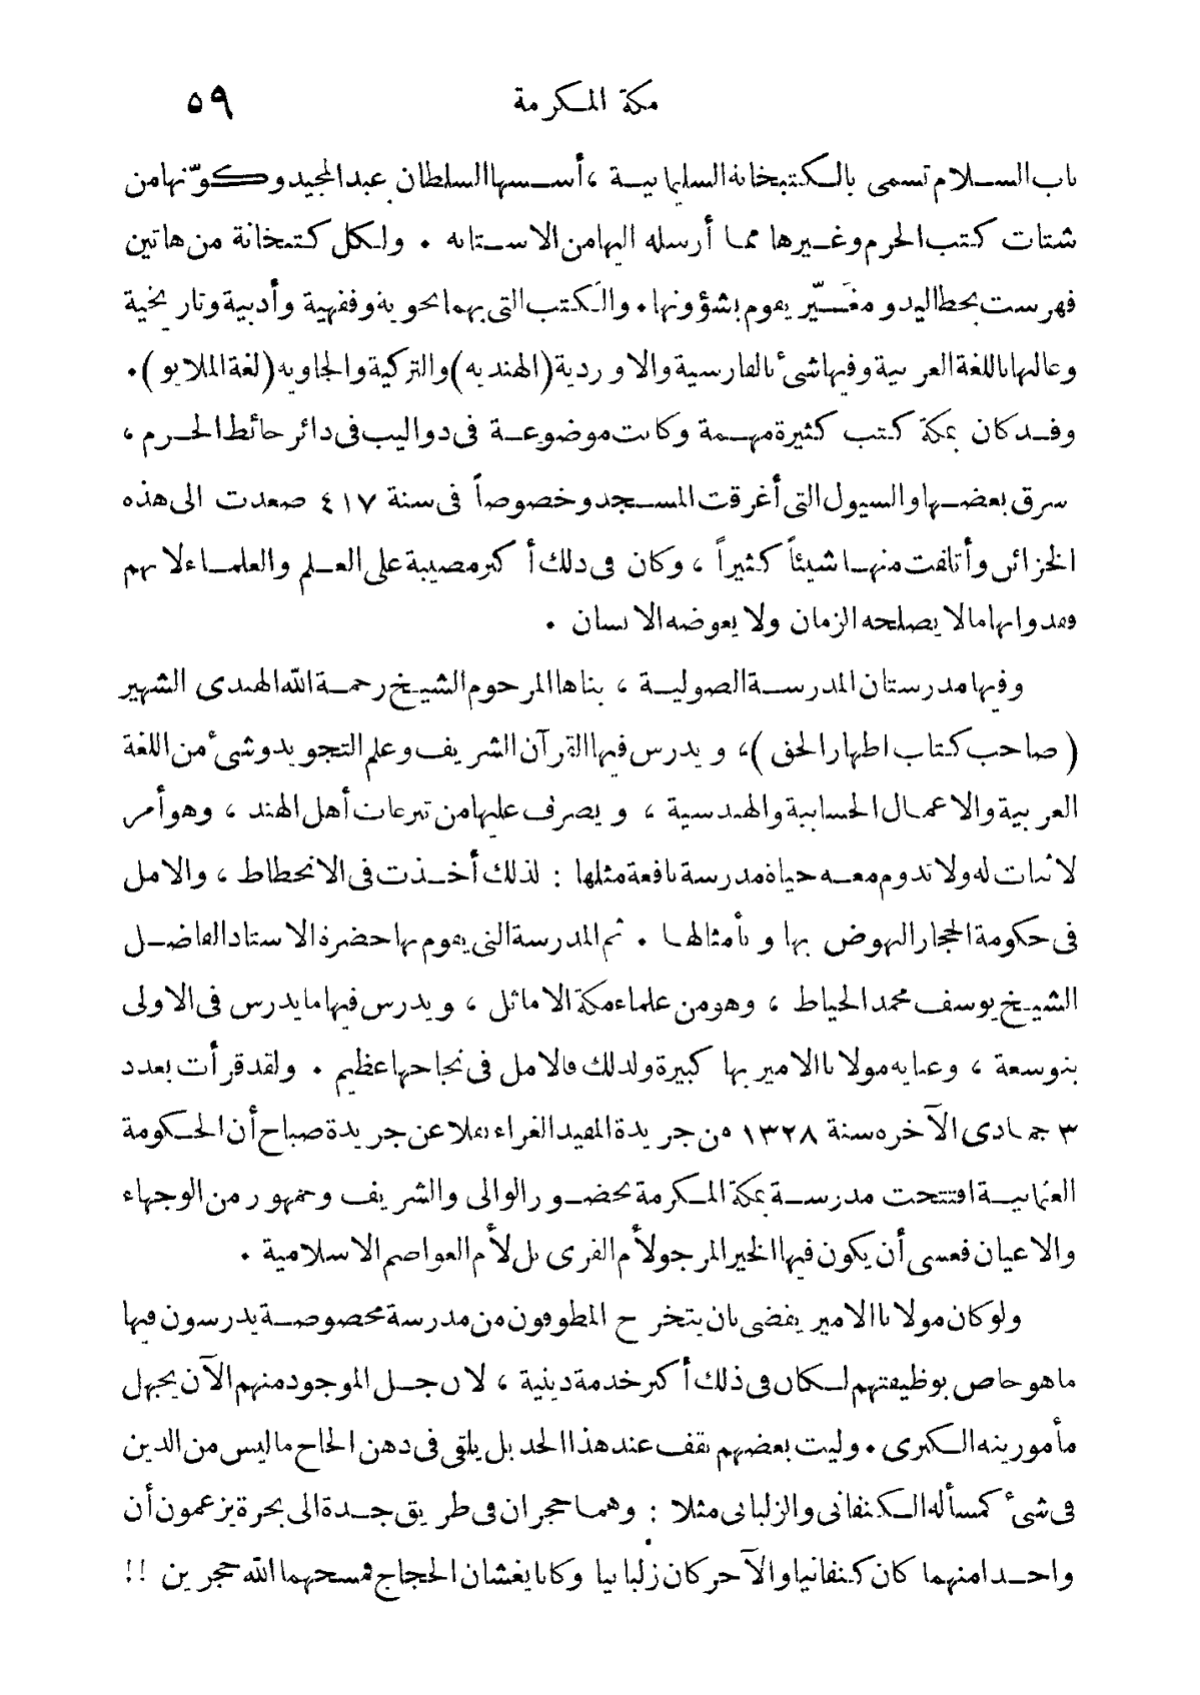 مكة المكرمة ٥٩
باب السلام تسمى بالكتبخانة السليمانية ، أسسها السلطان عبد المجيد وكوّنها من
شتات كتب الحرم وغيرها مما أرسله اليها من الاستانة . ولكل كتبخانة من هاتين
فهرست بخط اليد ومغَيِّر يقوم بشؤونها . والكتب التى بهما نحوية وفقهية وأدبية وتاريخية
وغالبها باللغة العربية وفيها شىء بالفارسية والاوردية (الهندية) والتركية والجاوية (لغة الملايو) .
وقد كان بمكة كتب كثيرة مهمة وكانت موضوعة فى دواليب فى دائر حائط الحرم ،
سرق بعضها والسيول التى أغرقت المسجد وخصوصاً فى سنة ٤١٧ صعدت الى هذه
الخزائن وأتلفت منها شيئاً كثيراً ، وكان فى ذلك أكبر مصيبة على العلم والعلماء لانهم
فقدوا بها مالا يصلحه الزمان ولا يعوضه الانسان .
وفيها مدرستان المدرسة الصولية ، بناها المرحوم الشيخ رحمة الله الهندى الشهير
( صاحب كتاب اظهار الحق ) ، ويدرس فيها القرآن الشريف وعلم التجويد وشىء من اللغة
العربية والاعمال الحسابية والهندسية ، ويصرف عليها من تبرعات أهل الهند ، وهو أمر
لا ثبات له ولا تدوم معه حياة مدرسة نافعة مثلها : لذلك أخذت فى الانحطاط ، والامل
فى حكومة الحجاز النهوض بها وبأمثالها . ثم المدرسة التى يقوم بها حضرة الاستاذ الفاضل
الشيخ يوسف محمد الخياط ، وهو من علماء مكة الاماثل ، ويدرس فيها ما يدرس فى الاولى
بتوسعة ، وعناية مولانا الامير بها كبيرة ولذلك فالامل فى نجاحها عظيم . ولقد قرأت بعدد
٣ جمادى الآخرة سنة ١٣٢٨ من جريدة المفيد الغراء نقلا عن جريدة صباح أن الحكومة
العثمانية افتتحت مدرسة بمكة المكرمة بحضور الوالى والشريف وجمهور من الوجهاء
والاعيان فعسى أن يكون فيها الخير المرجو لأم القرى بل لأم العواصم الاسلامية .
ولو كان مولانا الامير يقضى بان يتخرج المطوفون من مدرسة مخصوصة يدرسون فيها
ما هو خاص بوظيفتهم لكان فى ذلك أكبر خدمة دينية ، لان جل الموجود منهم الآن يجهل
مأموريته الكبرى . وليت بعضهم يقف عند هذا الحد بل يلقى فى ذهن الحاج ما ليس من الدين
فى شىء كمسألة الكنفانى والزلبانى مثلا : وهما حجران فى طريق جدة الى بحرة يزعمون أن
واحدا منهما كان كنفانيا والآخر كان زلبانيا وكانا يغشان الحجاج فمسخهما الله حجرين !!